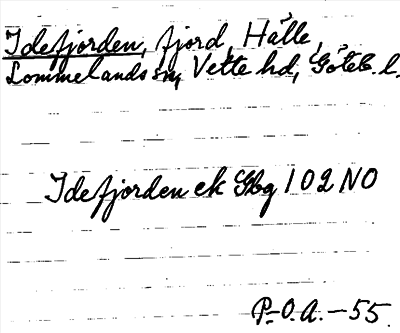 Idefjorden, fjord, Hälle,
Lommelands sn, Vette hd, Göteb. l.
Idefjorden ek Gbg 102 NO
P.-O.A. -55.